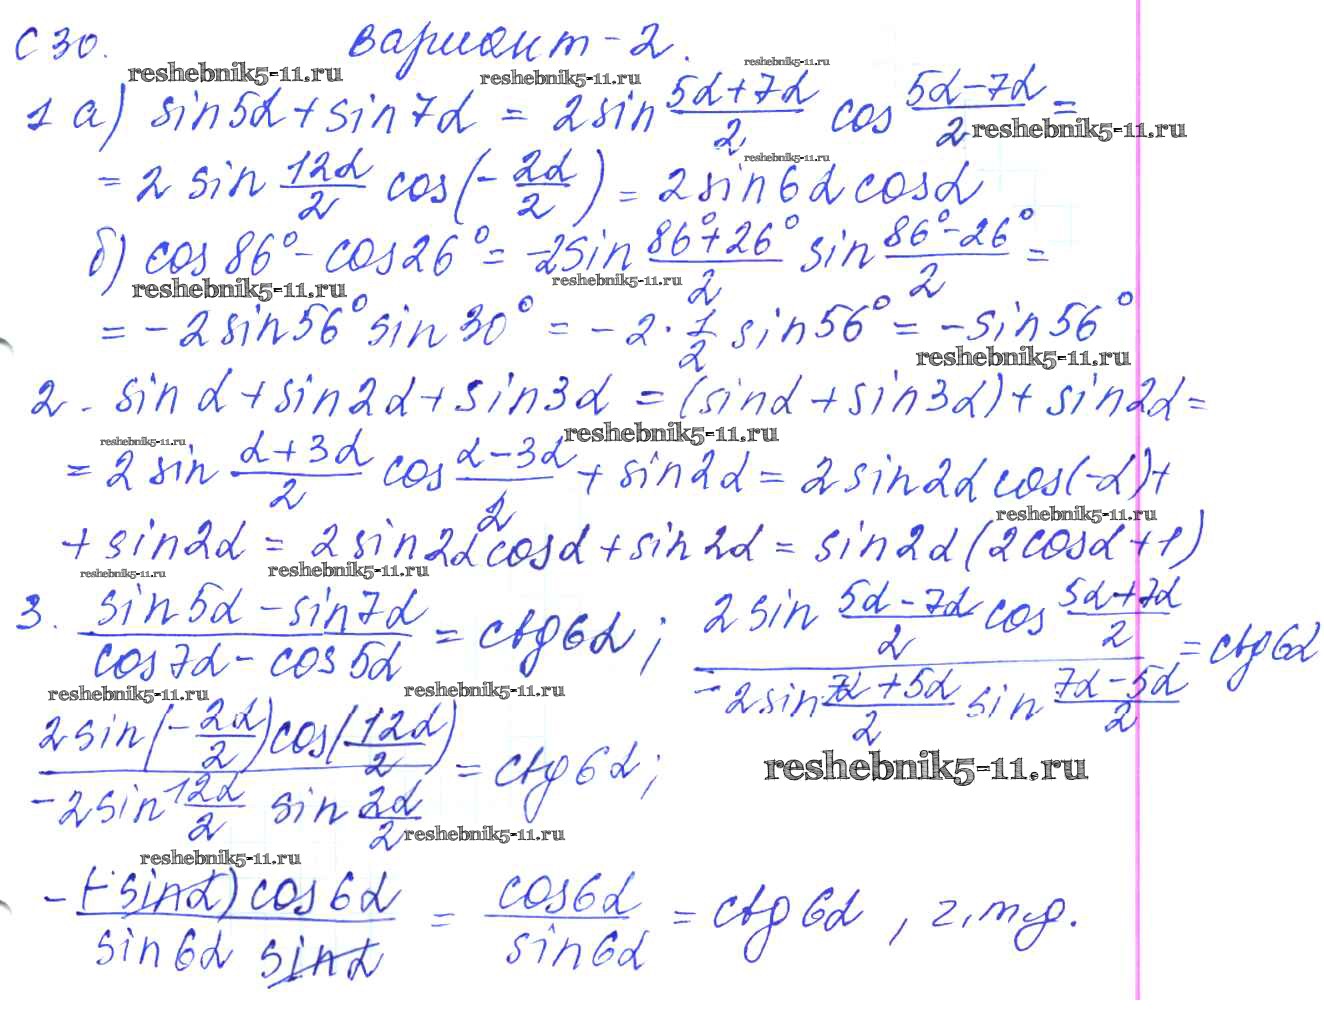 С 30. Вариант-2.
reshebnik5-11.ru reshebnik5-11.ru reshebnik5-11.ru
1 а) sin5α + sin7α = 2sin (5α+7α)/2 cos (5α-7α)/2 =
reshebnik5-11.ru
reshebnik5-11.ru
= 2 sin 12α/2 cos(- 2α/2) = 2sin6α cosα
б) cos86° - cos26° = -2sin (86°+26°)/2 sin (86°-26°)/2 =
reshebnik5-11.ru reshebnik5-11.ru
= -2sin56° sin30° = -2 · 1/2 sin56° = -sin56°
reshebnik5-11.ru
2. sinα + sin2α + sin3α = (sinα + sin3α) + sin2α =
reshebnik5-11.ru reshebnik5-11.ru
= 2 sin (α+3α)/2 cos (α-3α)/2 + sin2α = 2sin2α cos(-α)+
reshebnik5-11.ru
+ sin2α = 2sin2α cosα + sin2α = sin2α(2cosα+1)
reshebnik5-11.ru reshebnik5-11.ru
3. (sin5α - sin7α)/(cos7α - cos5α) = ctg6α; (2sin (5α-7α)/2 cos (5α+7α)/2)/(-2sin (7α+5α)/2 sin (7α-5α)/2) = ctg6α
reshebnik5-11.ru reshebnik5-11.ru
(2sin(- 2α/2)cos(12α/2))/(-2sin 12α/2 sin 2α/2) = ctg6α;
reshebnik5-11.ru
reshebnik5-11.ru
reshebnik5-11.ru
- ((-sinα)cos6α)/(sin6α sinα) = cos6α/sin6α = ctg6α, ч.т.д.